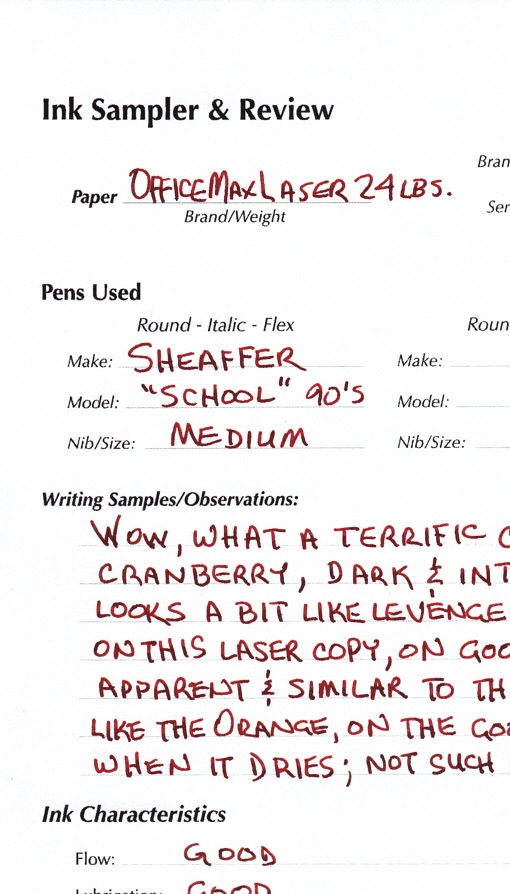 Ink Sampler & Review
Bran
Paper OFFICEMAX LASER 24 LBS.
Brand/Weight
Ser
Pens Used
Round - Italic - Flex
Roun
Make: SHEAFFER
Make:
Model: "SCHOOL" 90'S
Model:
Nib/Size: MEDIUM
Nib/Size:
Writing Samples/Observations:
WOW, WHAT A TERRIFIC C
CRANBERRY, DARK & INT
LOOKS A BIT LIKE LEVENGE
ON THIS LASER COPY, ON GOO
APPARENT & SIMILAR TO TH
LIKE THE ORANGE, ON THE GO
WHEN IT DRIES; NOT SUCH
Ink Characteristics
Flow: GOOD
Lubrication: GOOD